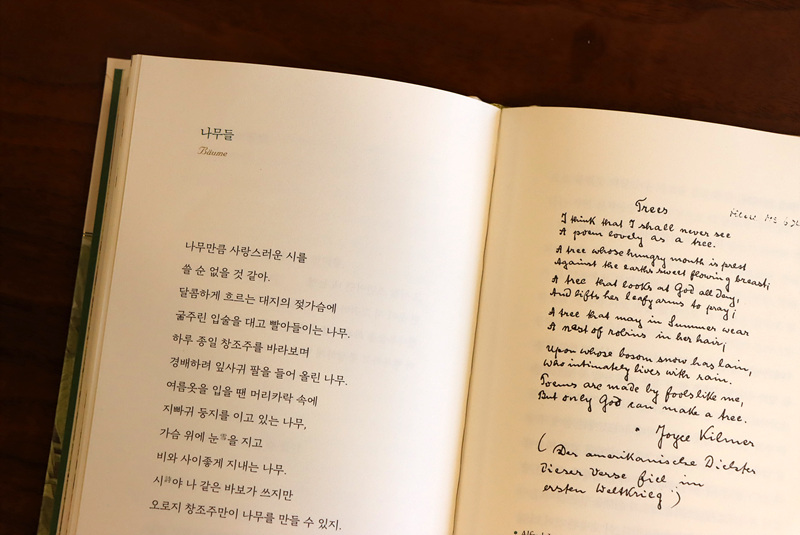 나무들
Bäume
나무만큼 사랑스러운 시를
쓸 순 없을 것 같아.
달콤하게 흐르는 대지의 젖가슴에
굶주린 입술을 대고 빨아들이는 나무.
하루 종일 창조주를 바라보며
경배하려 잎사귀 팔을 들어 올린 나무.
여름옷을 입을 땐 머리카락 속에
지빠귀 둥지를 이고 있는 나무,
가슴 위에 눈雪을 지고
비와 사이좋게 지내는 나무.
시詩야 나 같은 바보가 쓰지만
오로지 창조주만이 나무를 만들 수 있지.
Trees
I think that I shall never see
A poem lovely as a tree.
A tree whose hungry mouth is prest
Against the earths sweet flowing breast;
A tree that looks at God all day,
And lifts her leafy arms to pray;
A tree that may in Summer wear
A nest of robins in her hair;
Upon whose bosom snow has lain,
Who intimately lives with rain.
Poems are made by fools like me,
But only God can make a tree.
Joyce Kilmer
(Der amerikanische Dichter
dieser Verse fiel im
ersten Weltkrieg)